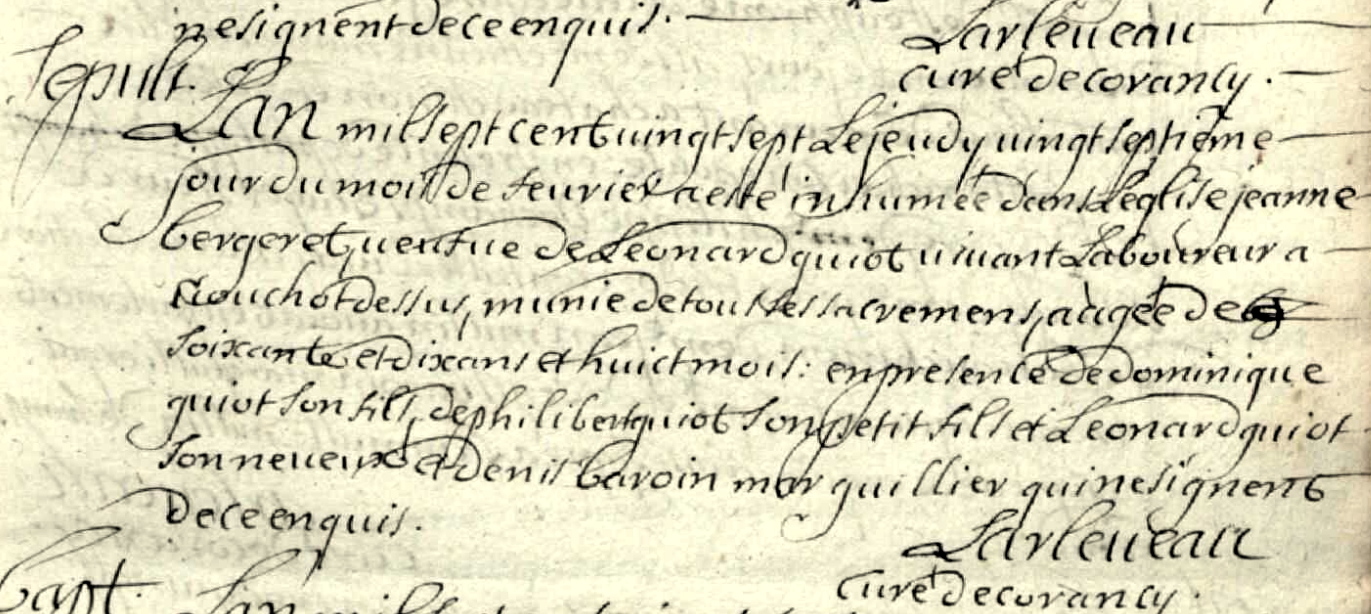 ne signent de ce enquis.
Larleveau
curé de corancy.
Sepult.
L'an mil sept cent vingt sept Le jeudy vingt septieme
jour du mois de fevrier a esté inhumée dans L'eglise jeanne
bergeret veufue de Leonard guiot vivant Laboureur a
dessus, munie de tous Les sacremens, aagée de
soixante et dix ans et huict mois: en presence de dominique
guiot son fils, de philibert guiot son petit fils et Leonard guiot
son neveux et denis baroin marguillier qui ne signent
De ce enquis.
Larleveau
curé de corancy.
bapt.
L'an mil sept